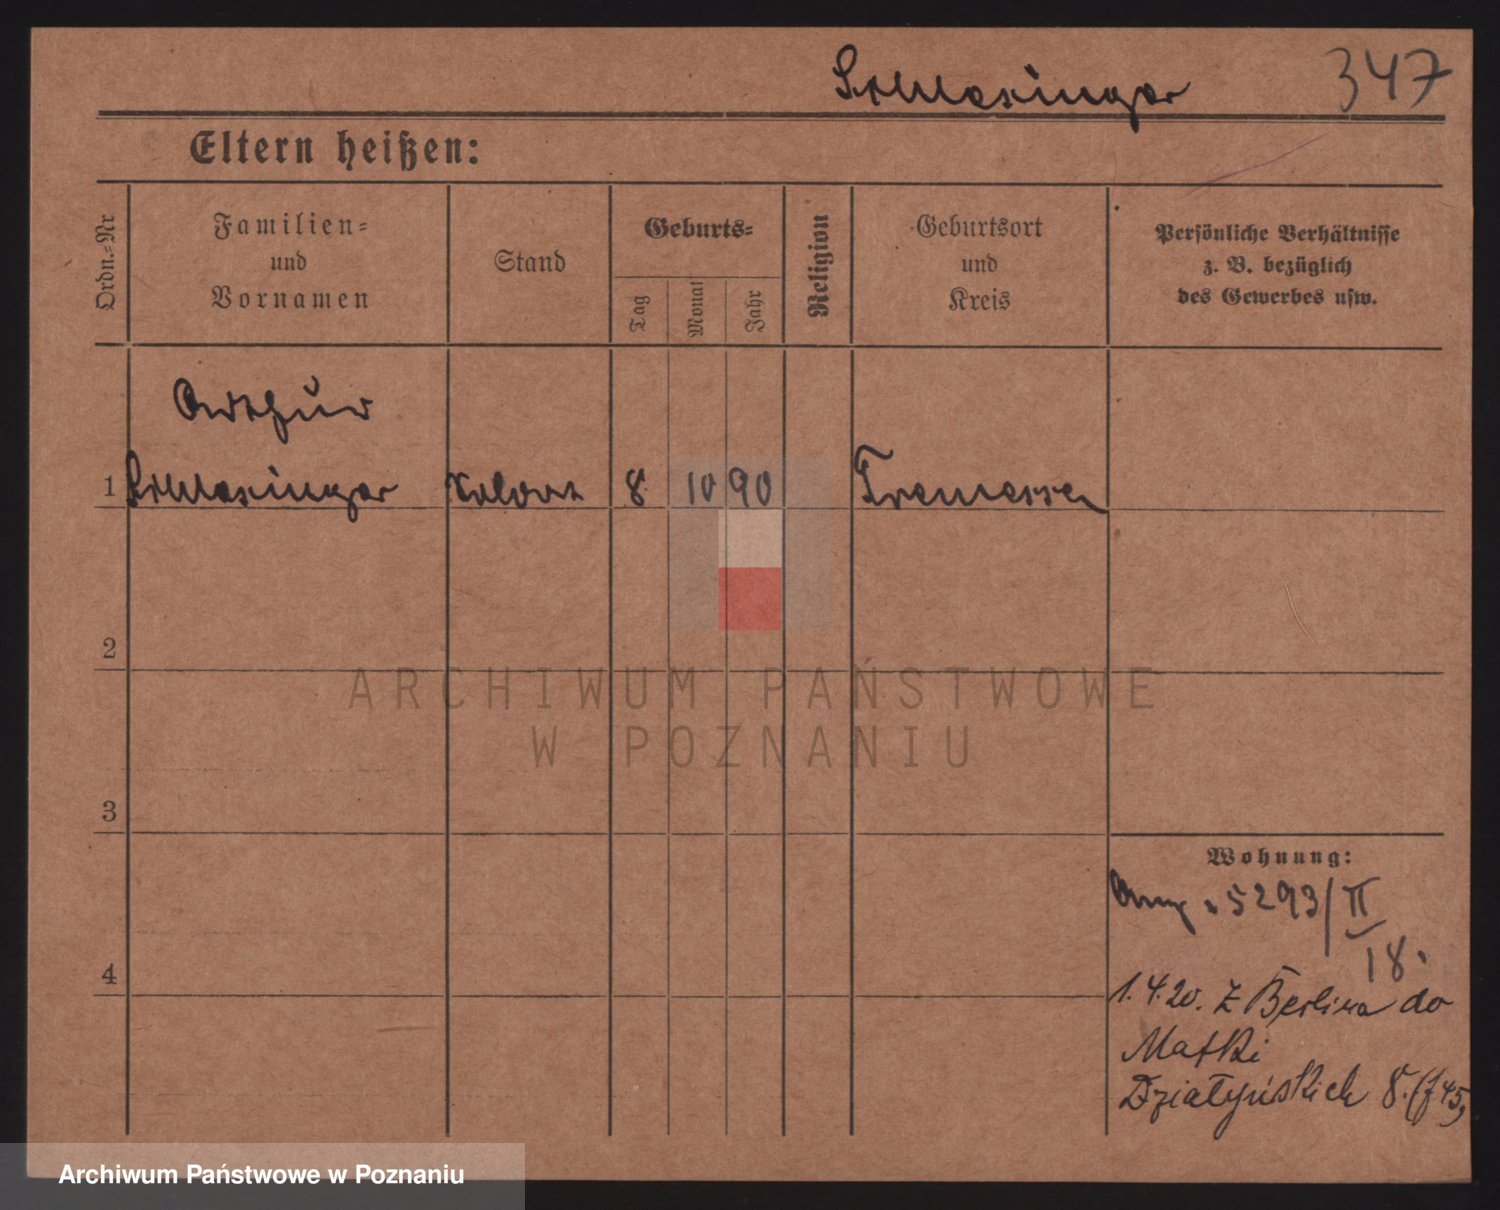 Schlesinger 347
Eltern heißen:
Ordn.-Nr
Familien-
und
Vornamen
Stand
Geburts-
Tag
Monat
Jahr
Religion
Geburtsort
und
Kreis
Persönliche Verhältnisse
z. B. bezüglich
des Gewerbes usw.
Arthur
1 Schlesinger Soldat 8 10 90 Tremessen
2
3
4
Wohnung:
5293/II
18.
1.4.20. Z Berlina do
Matki
Działyńskich 8.
ARCHIWUM PAŃSTWOWE
W POZNANIU
Archiwum Państwowe w Poznaniu